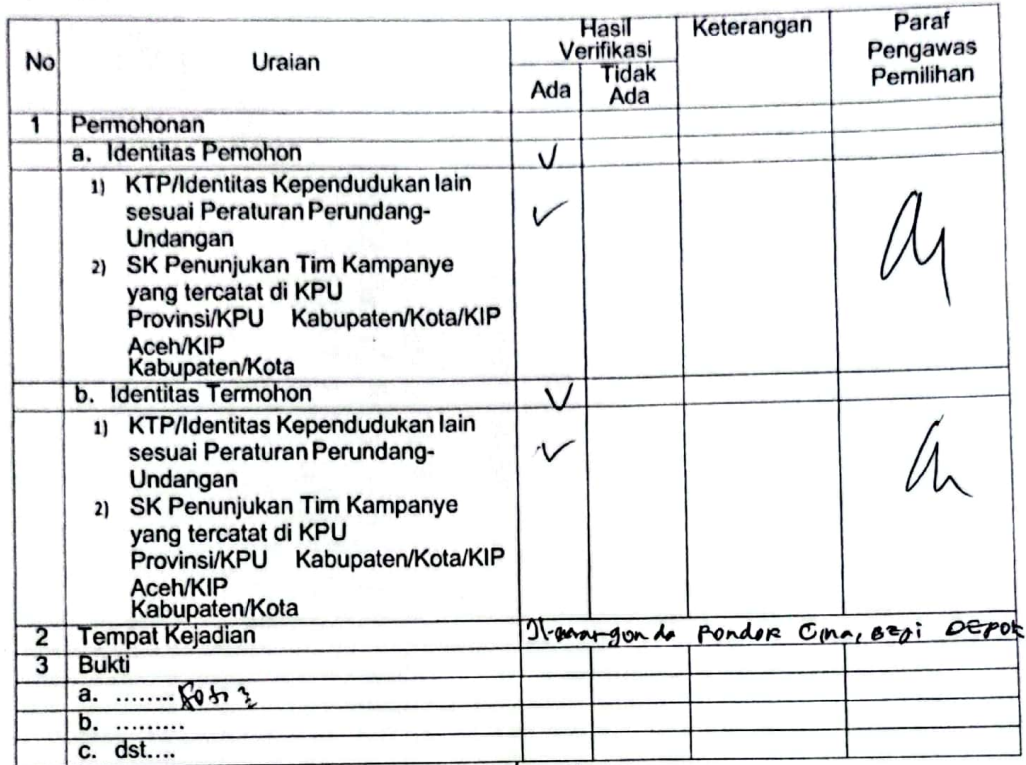 No Uraian Hasil Verifikasi Keterangan Paraf Pengawas Pemilihan
Ada Tidak Ada
1 Permohonan
a. Identitas Pemohon V
1) KTP/Identitas Kependudukan lain
sesuai Peraturan Perundang- ✓
Undangan
2) SK Penunjukan Tim Kampanye
yang tercatat di KPU
Provinsi/KPU Kabupaten/Kota/KIP
Aceh/KIP
Kabupaten/Kota
b. Identitas Termohon V
1) KTP/Identitas Kependudukan lain
sesuai Peraturan Perundang- ✓
Undangan
2) SK Penunjukan Tim Kampanye
yang tercatat di KPU
Provinsi/KPU Kabupaten/Kota/KIP
Aceh/KIP
Kabupaten/Kota
2 Tempat Kejadian Pondok Cina, DEPOK
3 Bukti
a. ........
b. .........
c. dst....